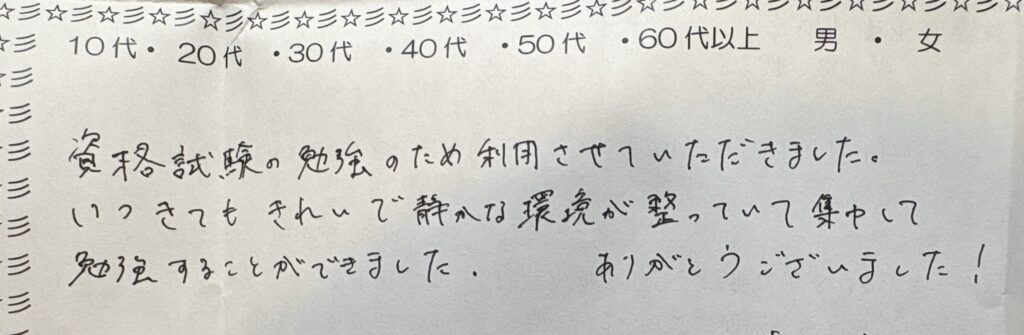 10代・20代・30代・40代・50代・60代以上 男・女
資格試験の勉強のため利用させていただきました。
いつきてもきれいで静かな環境が整っていて集中して
勉強することができました. ありがとうございました!